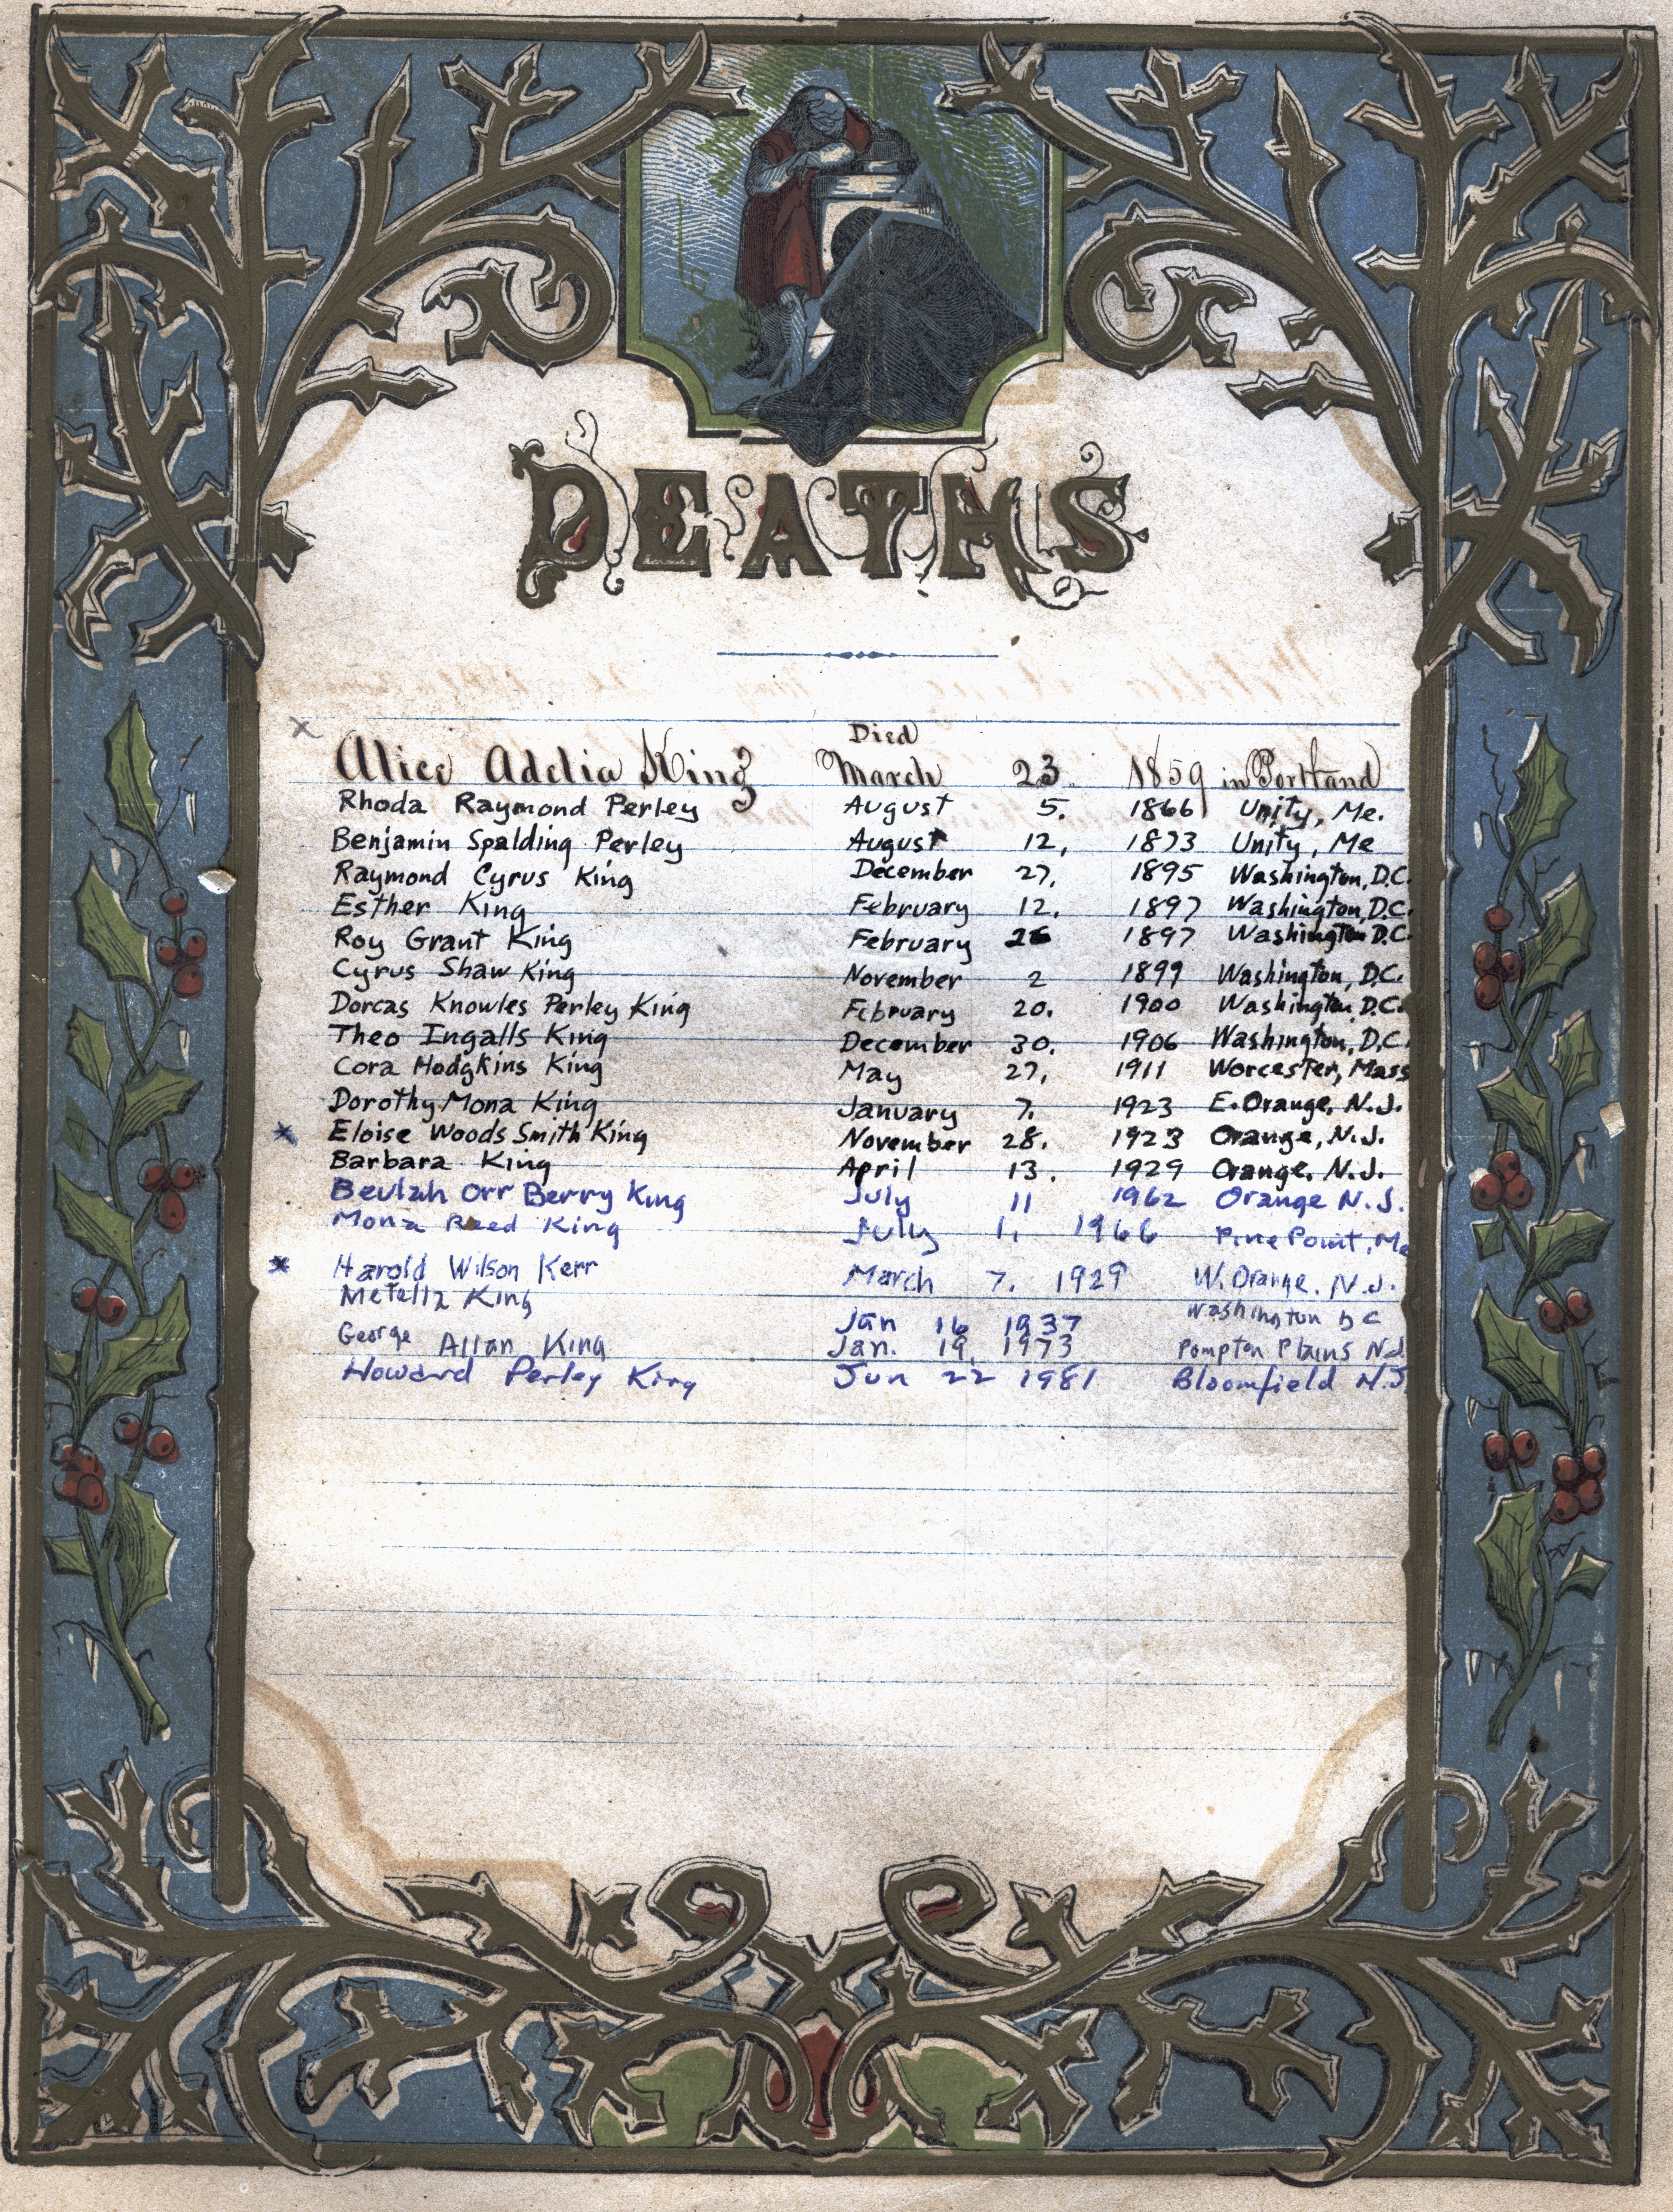 DEATHS
x Died
Alice Adelia King March 23. 1859 in Portland
Rhoda Raymond Perley August 5. 1866 Unity, Me.
Benjamin Spalding Perley August 12, 1873 Unity, Me
Raymond Cyrus King December 27. 1895 Washington, D.C.
Esther King February 12. 1897 Washington, D.C.
Roy Grant King February 26 1897 Washington D.C.
Cyrus Shaw King November 2 1899 Washington, D.C.
Dorcas Knowles Perley King February 20. 1900 Washington, D.C.
Theo Ingalls King December 30. 1906 Washington, D.C.
Cora Hodgkins King May 27, 1911 Worcester, Mass
Dorothy Mona King January 7. 1923 E. Orange, N.J.
x Eloise Woods Smith King November 28. 1923 Orange, N.J.
Barbara King April 13. 1929 Orange, N.J.
Beulah Orr Berry King July 11 1962 Orange N.J.
Mona Reed King July 1, 1966 Pine Point, Me
x Harold Wilson Kerr March 7. 1929 W. Orange. N.J.
Metella King Jan 16 1937 Washington DC
George Allan King Jan. 19, 1973 Pompton Plains N.J.
Howard Perley King Jun 22 1981 Bloomfield N.J.